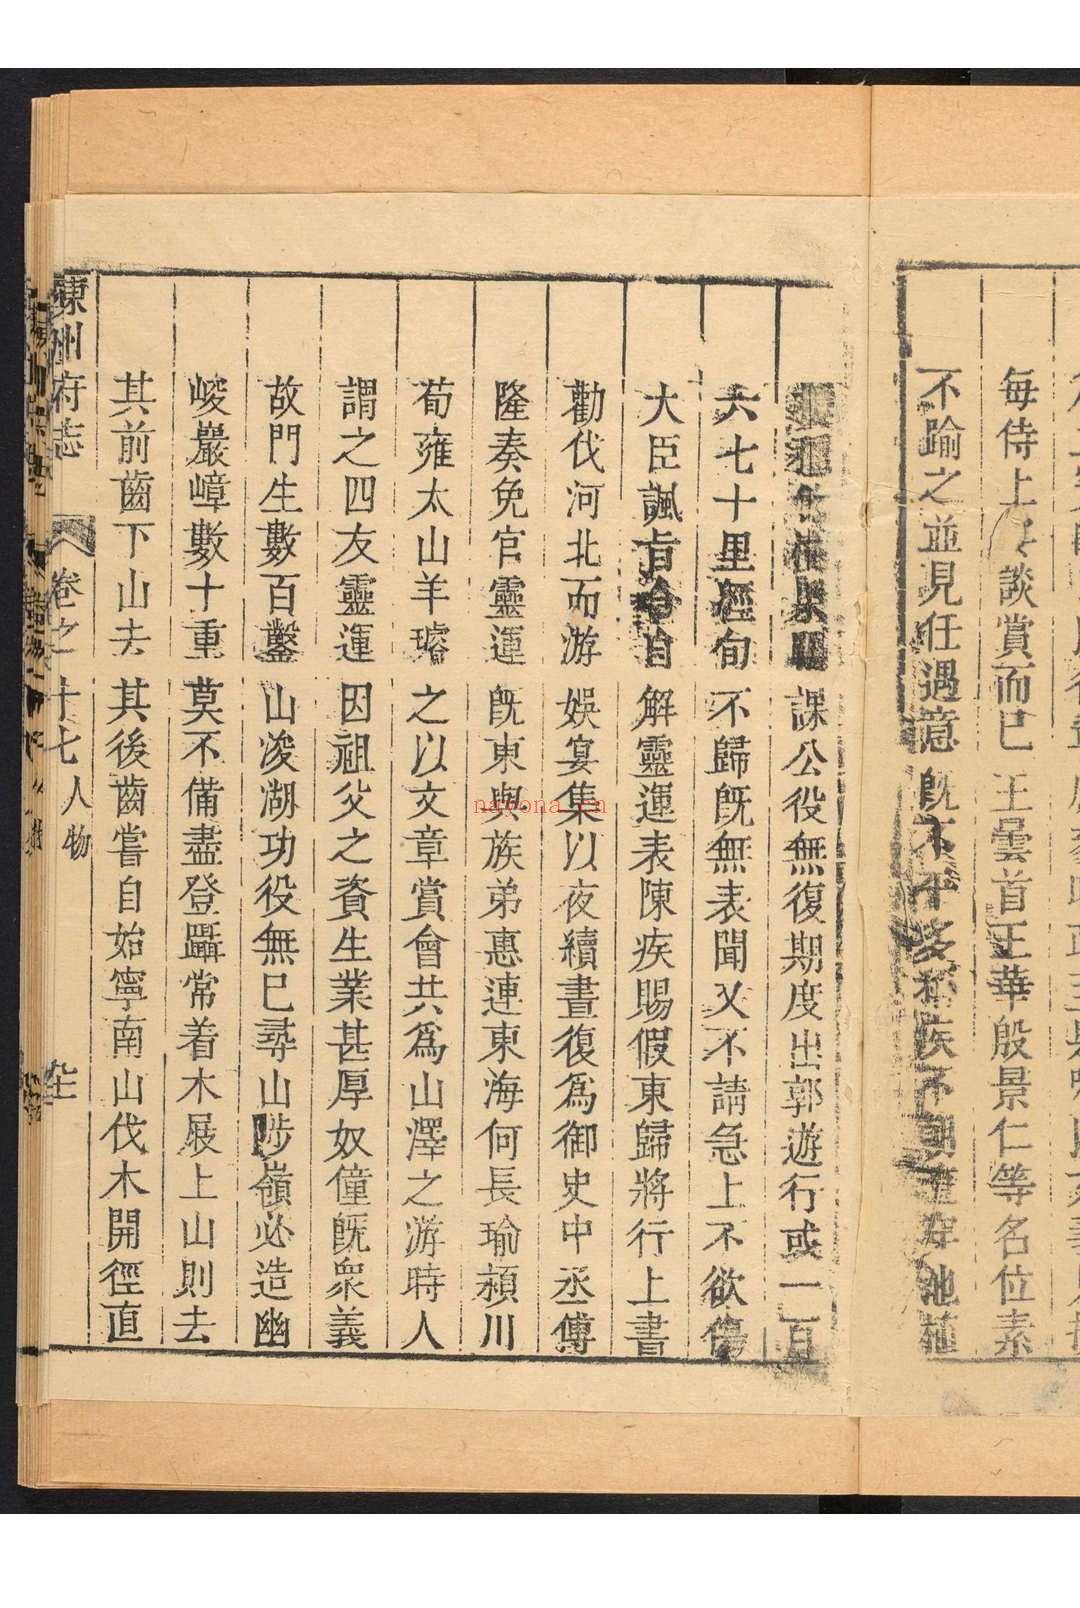 每侍上宴談賞而已王曇首王華殷景仁等名位素
不踰之並見任遇意既不平多稱疾不朝直穿池植
課公役無復期度出郭遊行或一百
六七十里經旬不歸既無表聞又不請急上不欲傷
大臣諷旨令自解靈運表陳疾賜假東歸將行上書
勸伐河北而游娛宴集以夜續晝復為御史中丞傅
隆奏免官靈運既東與族弟惠連東海何長瑜潁川
荀雍太山羊璿之以文章賞會共為山澤之游時人
謂之四友靈運因祖父之資生業甚厚奴僮既衆義
故門生數百鑿山浚湖功役無已尋山陟嶺必造幽
峻巖嶂數十重莫不備盡登躡常着木屐上山則去
其前齒下山去其後齒嘗自始寧南山伐木開徑直
州府志 卷之十七 人物
nayona.cn